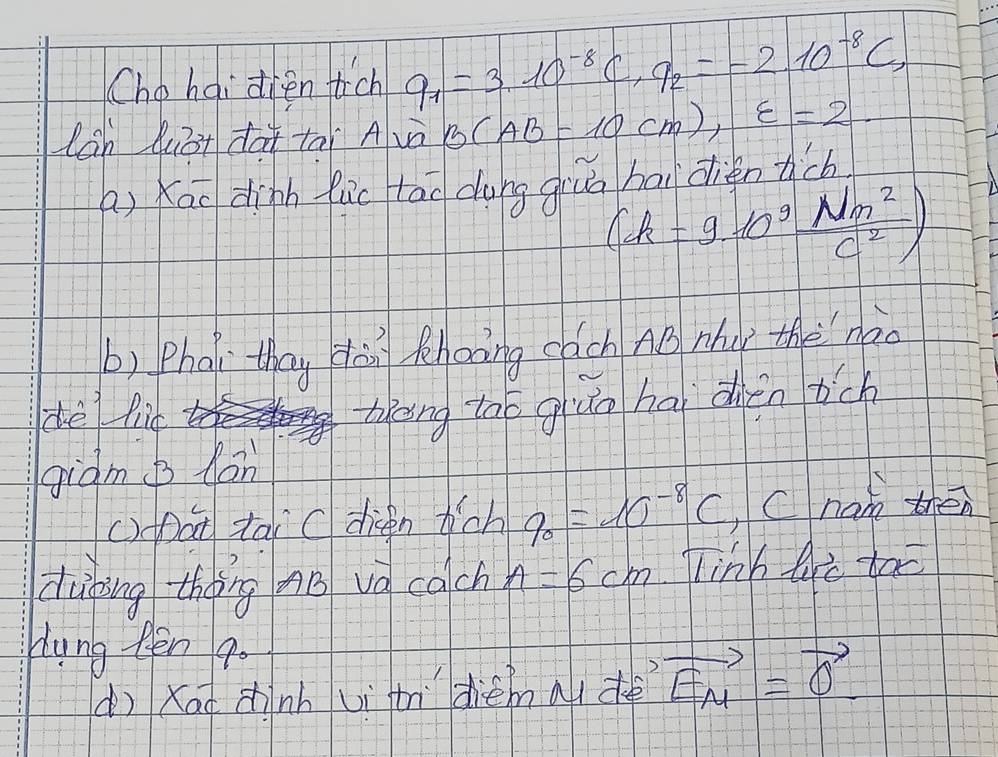 Cho hai điện tích q₁ = 3.10⁻⁸C, q₂ = -2.10⁻⁸C,
lần lượt đặt tại A và B (AB = 10 cm), ε = 2.
a) Xác định lực tác dụng giữa hai điện tích.
(k = 9.10⁹ Nm²/C²)
b) Phải thay đổi khoảng cách AB như thế nào
để lực tương tác giữa hai điện tích
giảm 3 lần
c) Đặt tại C điện tích q₀ = 10⁻⁸C, C nằm trên
đường thẳng AB và cách A = 6 cm. Tính lực tác
dụng lên q₀
d) Xác định vị trí điểm M để E⃗_M = 0⃗